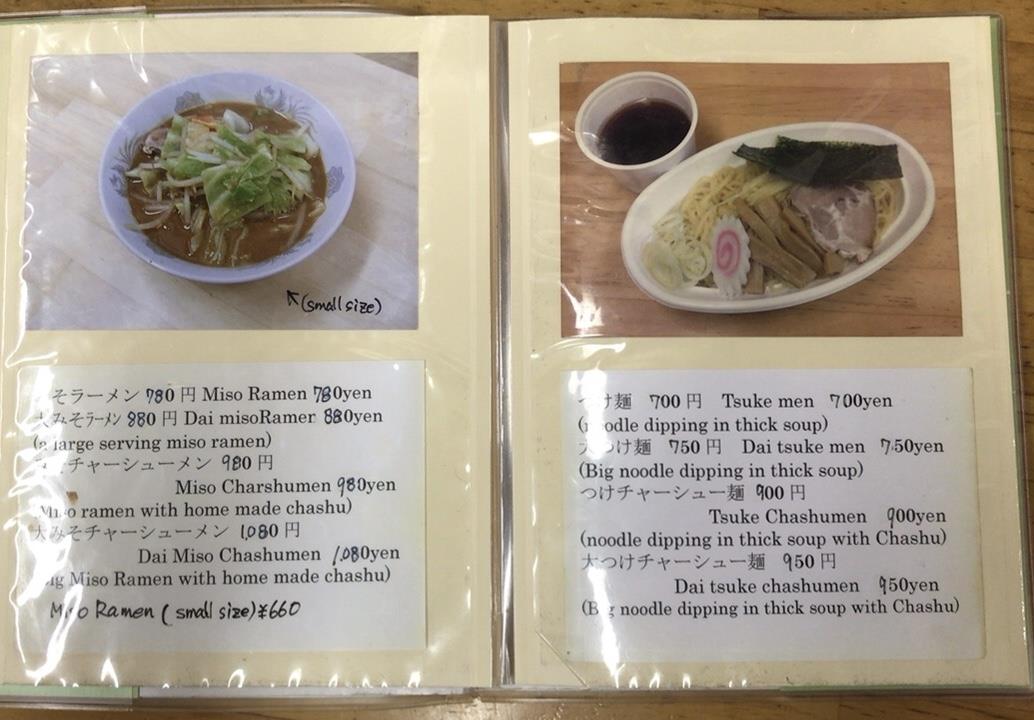 (small size)
みそラーメン 780円 Miso Ramen 780yen
大みそラーメン 880円 Dai misoRamer 880yen
(a large serving miso ramen)
チャーシューメン 980円
Miso Charshumen 980yen
(Miso ramen with home made chashu)
大みそチャーシューメン 1,080円
Dai Miso Chashumen 1,080yen
(Big Miso Ramen with home made chashu)
Miso Ramen (small size) ¥660
つけ麺 700円 Tsuke men 700yen
(noodle dipping in thick soup)
大つけ麺 750円 Dai tsuke men 750yen
(Big noodle dipping in thick soup)
つけチャーシュー麺 900円
Tsuke Chashumen 900yen
(noodle dipping in thick soup with Chashu)
大つけチャーシュー麺 950円
Dai tsuke chashumen 950yen
(Big noodle dipping in thick soup with Chashu)